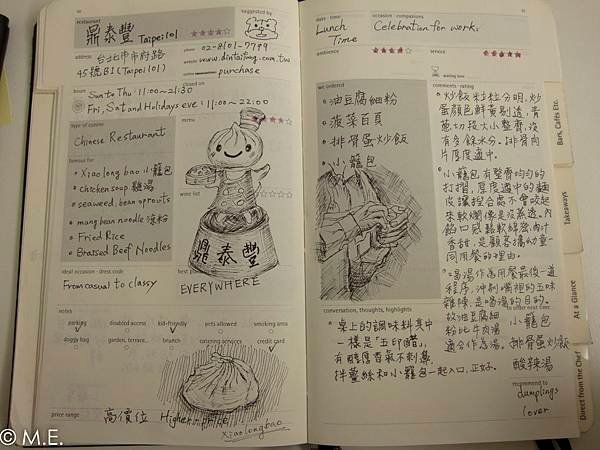 restaurant
鼎泰豐 Taipei101
suggested by
address
台北市市府路
45號B1(Taipei101)
phone
02-8101-7799
website
www.dintaifung.com.tw
purchase
hours
Sun to Thu: 11:00~21:30
Fri, Sat and Holidays eve: 11:00~22:00
closed on
type of cuisine
Chinese Restaurant
menu
famous for
Xiao long bao 小籠包
chicken soup 雞湯
seaweed, bean sprouts
mung bean noodle 涼粉
Fried Rice
Braised Beef Noodles
wine list
鼎泰豐
ideal occasion · dress code
From casual to classy
EVERYWHERE
notes
parking
disabled access
kid-friendly
pets allowed
smoking area
doggy bag
garden, terrace...
brunch
catering services
credit card
price range
高價位 Higher price
Xiaolongbao
date · time
Lunch
Time
occasion · companions
Celebration for work.
ambience
service
waiting time
we ordered
油豆腐細粉
菠菜百頁
排骨蛋炒飯
小籠包
comments · rating
炒飯粒粒分明,炒
蛋顏色鮮黃剔透,青
蔥切段大小整齊,沒
有多餘水分。排骨肉
片厚度適中。
小籠包有整齊均勻的
打摺,厚度適中的麵
皮讓接合處不會咬起
來軟爛像是沒蒸透。內
餡口感鬆軟綿密,肉汁
香甜,是顧客攜幼童一
同用餐的理由。
湯作為用餐最後一道
程序,沖刷嘴裡的五味
雜陳,是喝湯的目的。
故油豆腐細
粉比牛肉湯
適合作為湯。
to order next time
小籠包
排骨蛋炒飯
酸辣湯
recommend to
dumplings
lover
conversation, thoughts, highlights
桌上的調味料其中
一樣是「五印醋」,
有醇厚香氣不刺鼻,
拌薑絲和小籠包一起入口,正好。
Bars, Cafés Etc.
Takeaways
At a Glance
Direct from the Chef
© M.E.